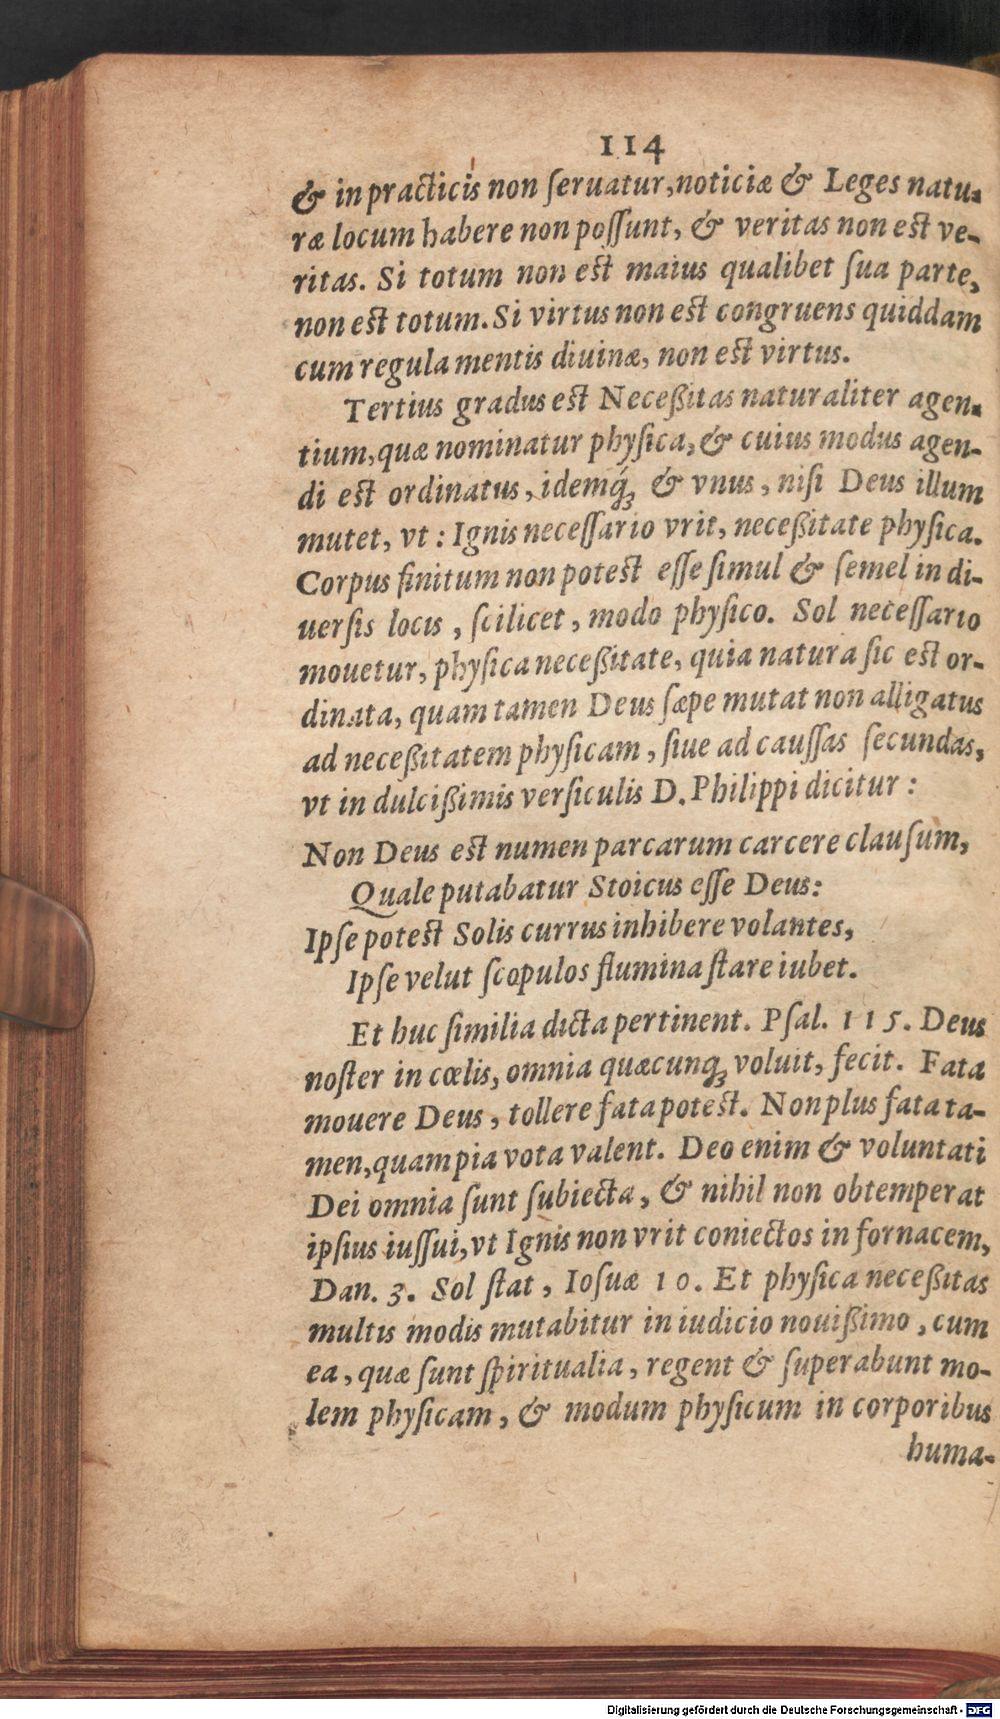 114
& in practicis non ſeruatur, noticiæ & Leges natu-
ræ locum habere non poſſunt, & veritas non est ve-
ritas. Si totum non est maius qualibet ſua parte,
non est totum. Si virtus non est congruens quiddam
cum regula mentis diuinæ, non est virtus.
Tertius gradus est Neceßitas naturaliter agen-
tium, quæ nominatur phyſica, & cuius modus agen-
di est ordinatus, idemq́ꝫ & vnus, niſi Deus illum
mutet, vt: Ignis neceſſario vrit, neceßitate phyſica.
Corpus finitum non potest eſſe ſimul & ſemel in di-
uerſis locis, ſcilicet, modo phyſico. Sol neceſſario
mouetur, phyſica neceßitate, quia natura ſic est or-
dinata, quam tamen Deus ſæpe mutat non alligatus
ad neceßitatem phyſicam, ſiue ad cauſſas ſecundas,
vt in dulcißimis verſiculis D. Philippi dicitur:
Non Deus est numen parcarum carcere clauſum,
Quale putabatur Stoicus eſſe Deus:
Ipſe potest Solis currus inhibere volantes,
Ipſe velut ſcopulos flumina ſtare iubet.
Et huc ſimilia dicta pertinent. Pſal. 115. Deus
noſter in cœlis, omnia quæcunqꝫ voluit, fecit. Fata
mouere Deus, tollere fata potest. Non plus fata ta-
men, quam pia vota valent. Deo enim & voluntati
Dei omnia ſunt ſubiecta, & nihil non obtemperat
ipſius iuſſui, vt Ignis non vrit coniectos in fornacem,
Dan. 3. Sol ſtat, Ioſuæ 10. Et phyſica neceßitas
multis modis mutabitur in iudicio nouißimo, cum
ea, quæ ſunt ſpiritualia, regent & ſuperabunt mo-
lem phyſicam, & modum phyſicum in corporibus
huma-
Digitalisierung gefördert durch die Deutsche Forschungsgemeinschaft - DFG